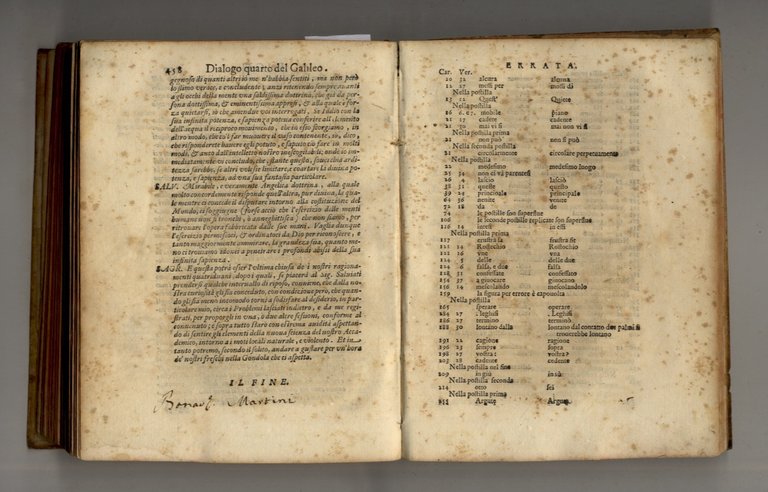 458 Dialogo quarto del Galileo.
gegnoso di quanti altri io me n'habbia sentiti, ma non però
lo stimo verace, e concludente; anzi ritenendo sempre auanti
a gli occhi della mente vna saldissima dottrina, che già da per-
sona dottissima, & eminentissima appresi, & alla quale è for-
za quietarsi, sò che amendue voi interrogati, Se Iddio con la
sua infinita potenza, e sapienza poteua conferire all'elemento
dell'acqua il reciproco mouimento, che in esso scorgiamo, in
altro modo, che co'l far muouere il vaso contenente; sò, dico,
che risponderete hauere egli potuto, e saputo ciò fare in molti
modi, & anco dall'intelletto nostro inescogitabili; onde io im-
mediatamente vi concludo, che stante questo, souerchia ardi-
tezza sarebbe, se altri volesse limitare, e coartare la diuina po-
tenza, e sapienza, ad vna sua fantasia particolare.
SALV. Mirabile, e veramente Angelica dottrina, alla quale
molto concordemente risponde quell'altra, pur diuina, la qua-
le mentre ci concede il disputare intorno alla costituzione del
Mondo, ci soggiugne (forse acciò che l'esercizio delle menti
humane non si tronchi, ò anneghittisca) che non siamo, per
ritrouare l'opera fabbricata dalle sue mani. Vaglia dunque
l'esercizio permessoci, & ordinatoci da Dio per riconoscere, e
tanto maggiormente ammirare, la grandezza sua, quanto me-
no ci trouiamo idonei a penetrare i profondi abissi della sua
infinita sapienza.
SAGR. E questa potrà esser l'vltima chiusa de i nostri ragiona-
menti quatriduani, dopo i quali, se piacerà al Sig. Saluiati
prendersi qualche interuallo di riposo, conuiene, che dalla no-
stra curiosità gli sia conceduto, con condizione però, che quan-
do gli sia meno incomodo torni à sodisfare al desiderio, in par-
ticolare mio, circa à i Problemi lasciati indietro, e da me regi-
strati, per proporgli in vna, ò due altre sessioni, conforme al
conuenuto; e sopra tutto starò con estrema auidità aspettan-
do di sentire gli elementi della nuoua scienza del nostro Acca-
demico, intorno a i moti locali naturale, e violento. Et in-
tanto potremo, secondo il solito, andare a gustare per vn'hora
de' nostri freschi nella Gondola che ci aspetta.
IL FINE.
Martini
ERRATA.
Car. Ver.
20 32 alcura alcuna
12 27 messi per mossi da
Nella postilla
15 12 Quest' Quiete
Nella postilla
16 6. e 7. mobile piano
21 17 cadere cadente
21 mai vi si mai non vi si
Nella postilla prima
21 non può non si può
Nella seconda postilla
21 circolarmente circolare perpetuamente
Nella postilla
22 medesimo medesimo luogo
25 34 non ci và parentesi
26 4 lascio lasciò
38 31 queste questo
59 24 principole principale
64 36 nenire venire
72 18 da de
74 le postille son superflue
106 le seconde postille replicate son superflue
116 14 intesi in essi
Nella postilla prima
117 snustra la finistra sie
121 14 Rostochio Rostochio
121 16 vne vna
124 5 delle delle due
124 6 falsa, e due falsa
128 31 confessate confessato
136 37 a giuocare giocano
156 14 mescolando mescolandolo
159 la figura per errore è capouolta
Nella postilla
165 sperare operare
184 27 l'leghist . Leghisti
186 26 termino terminò
188 30 lontano dalla lontano dal contatto due palmi si
trouerebbe lontano
191 22 cagione ragione
196 25 sempre sopra
198 27 vostra: vostra?
203 28 cadente cadente
Nella postilla nel fine
209 in giù in sù
Nella postilla seconda
214 otto sei
Nella postilla prima